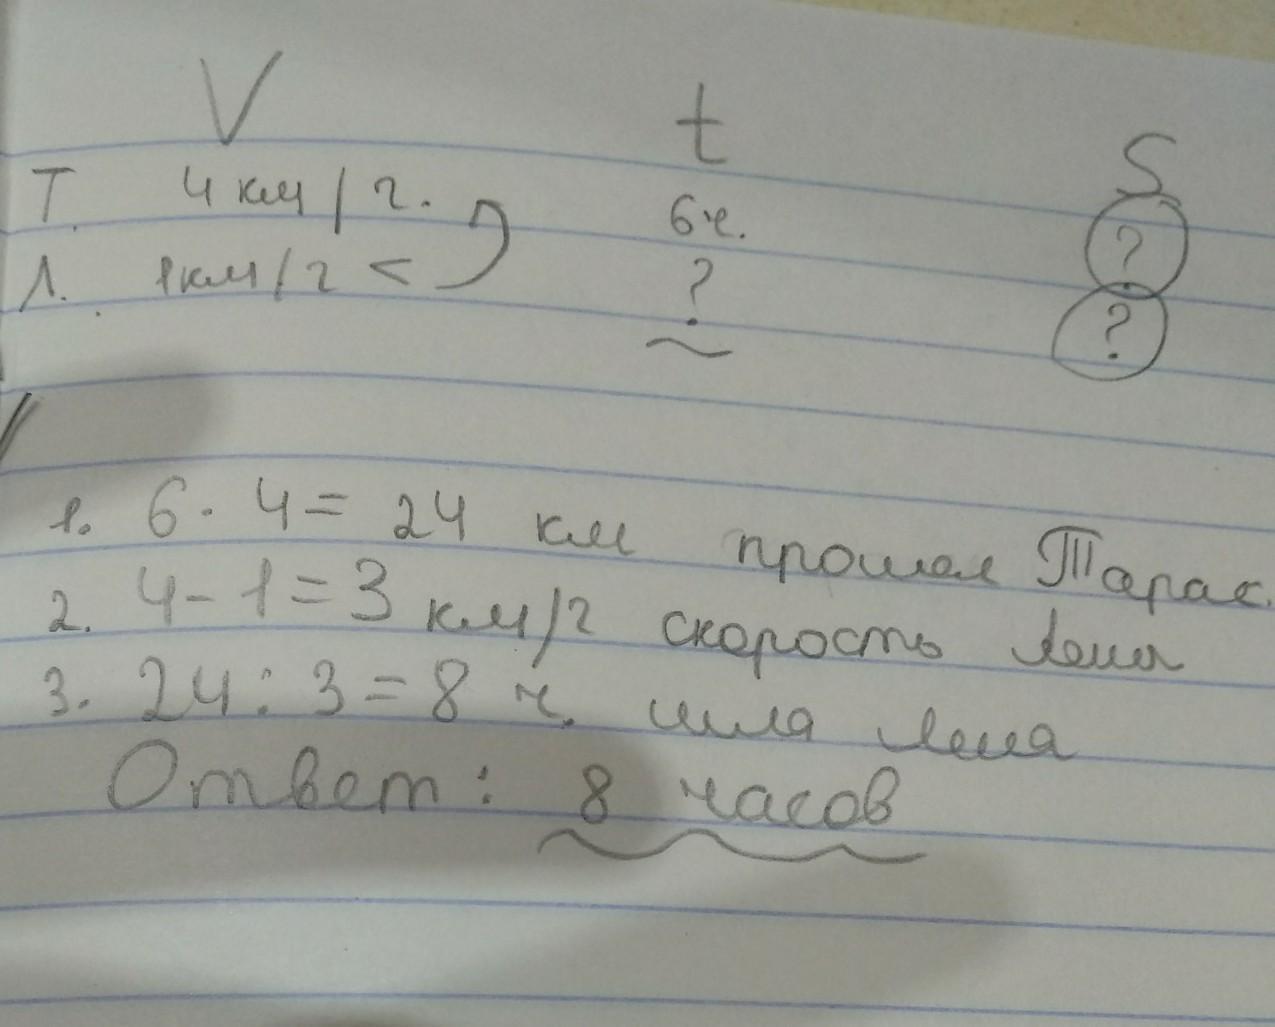 V t S
Т. 4 км/г. 6 ч. ?
Л. 1 км/г < ? ?
1. 6 · 4 = 24 км прошел Тарас.
2. 4 - 1 = 3 км/г скорость Лены
3. 24 : 3 = 8 ч. шла Лена
Ответ: 8 часов